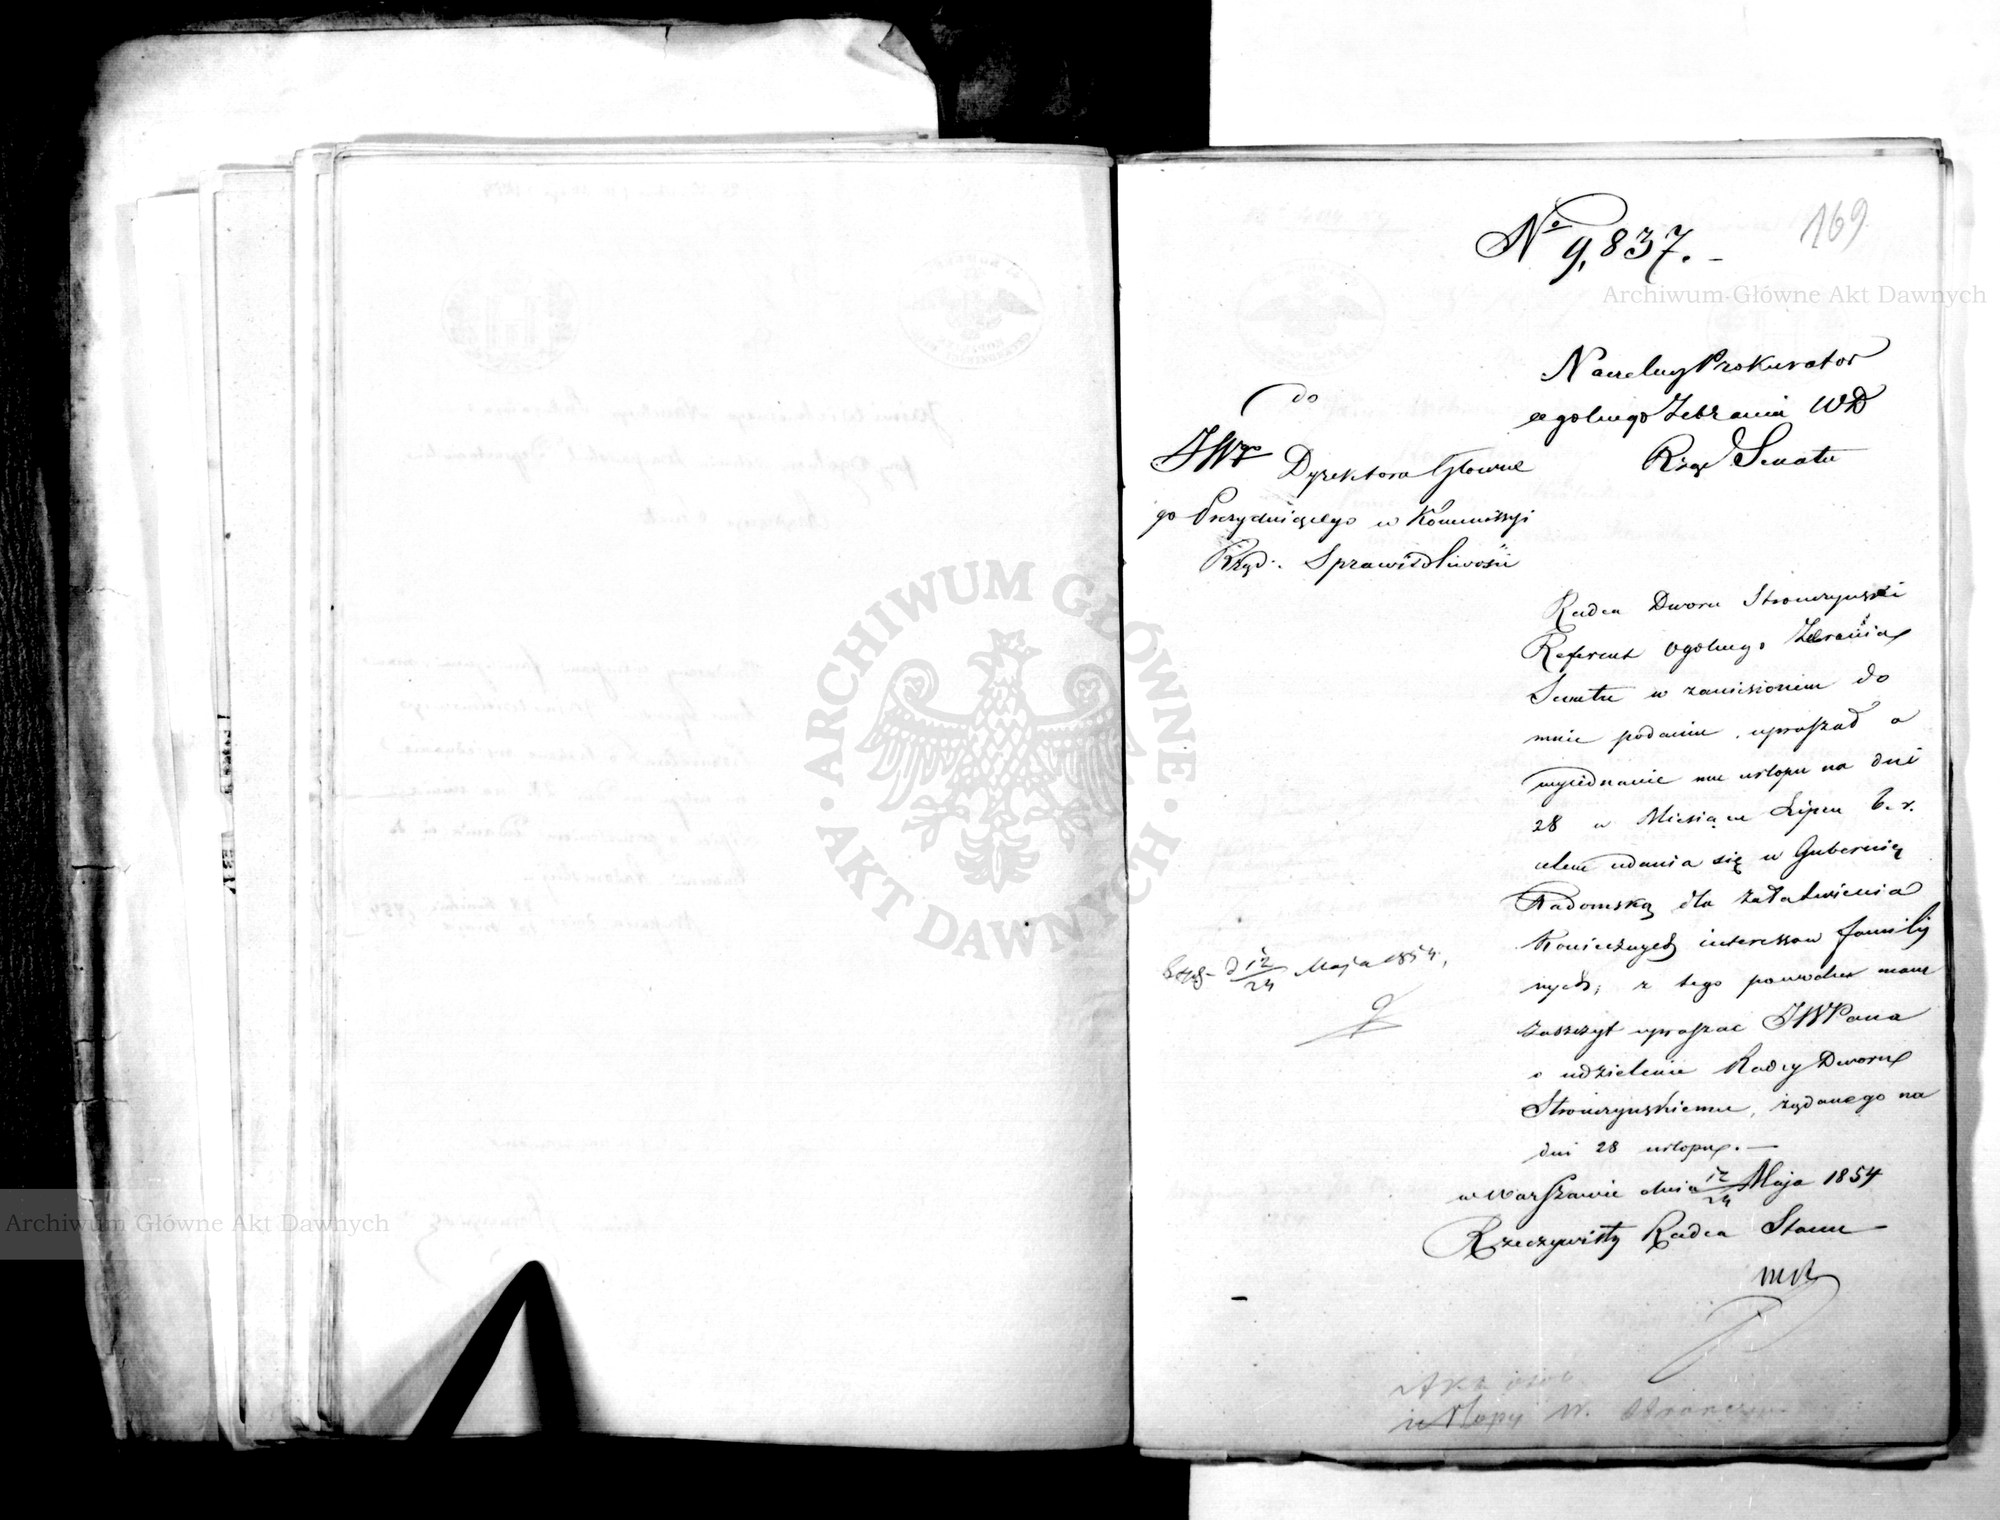 169
No 9,837. -
Archiwum Główne Akt Dawnych
Naczelny Prokurator
ogolnego Zebrania WD
Rząd Senatu
do
JWgo Dyrektora Główne
go Prezydującego w Kommissyi
Rząd. Sprawiedliwości
Radca Dworu Stronczynski
Referent Ogolnego Zebrania
Senatu w zaniesionem do
mnie podaniu, upraszał o
wyjednanie mu urlopu na dni
28 w Miesiącu Lipcu b. r.
celem udania się w Gubernią
Radomską dla załatwienia
koniecznych interessow familij
nych; z tego powodu mam
zaszczyt upraszac JWPana
o udzielenie Radcy Dworu
Stronczynskiemu, żądanego na
dni 28 urlopu. —
w Warszawie dnia 12/24 Maja 1854
Rzeczywisty Radca Stanu
d 12/24 Maja 1854.
Akta osob.
urlopy W. Stronczyn
ARCHIWUM GŁÓWNE
AKT DAWNYCH
Archiwum Główne Akt Dawnych